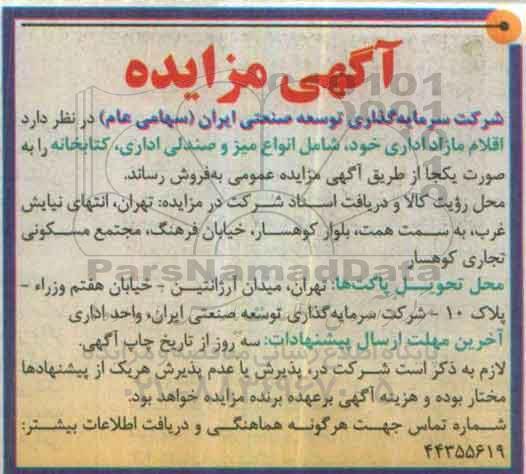 آگهی مزایده
شرکت سرمایه‌گذاری توسعه صنعتی ایران (سهامی عام) در نظر دارد
اقلام مازاد اداری خود، شامل انواع میز و صندلی اداری، کتابخانه را به
صورت یکجا از طریق آگهی مزایده عمومی به‌فروش رساند.
محل رؤیت کالا و دریافت اسناد شرکت در مزایده: تهران، انتهای نیایش
غرب، به سمت همت، بلوار کوهسار، خیابان فرهنگ، مجتمع مسکونی
تجاری کوهسار
محل تحویل پاکت‌ها: تهران، میدان آرژانتین - خیابان هفتم وزراء -
پلاک ۱۰ - شرکت سرمایه‌گذاری توسعه صنعتی ایران، واحد اداری
آخرین مهلت ارسال پیشنهادات: سه روز از تاریخ چاپ آگهی.
لازم به ذکر است شرکت در، پذیرش یا عدم پذیرش هریک از پیشنهادها
مختار بوده و هزینه آگهی برعهده برنده مزایده خواهد بود.
شماره تماس جهت هرگونه هماهنگی و دریافت اطلاعات بیشتر:
۴۴۳۵۵۶۱۹
ParsNamadData